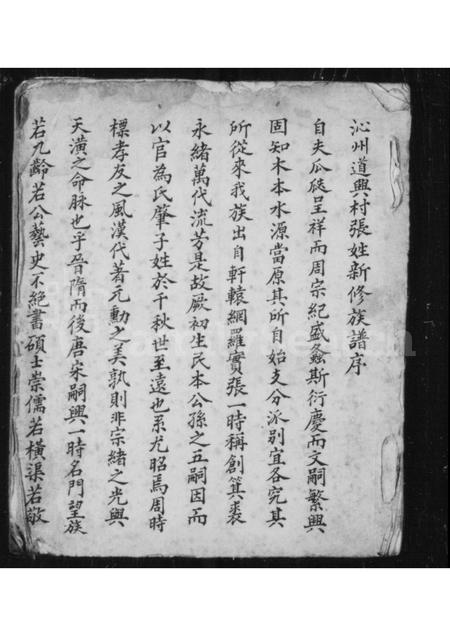 沁州道興村張姓新修族譜序
自夫瓜瓞呈祥而周宗紀盛螽斯衍慶而文嗣繁興
固知木本水源當原其所自始支分派別宜各究其
所從來我族出自軒轅網羅實張一時稱創箕裘
永緒萬代流芳是故厥初生民本公孫之五嗣因而
以官為氏肇子姓於千秋世至遠也系尤昭焉周時
標孝友之風漢代著元勳之美孰則非宗緒之光與
天潢之命脉也乎晉隋而後唐宋嗣興一時名門望族
若九齡若公藝史不絕書碩士崇儒若橫渠若敬